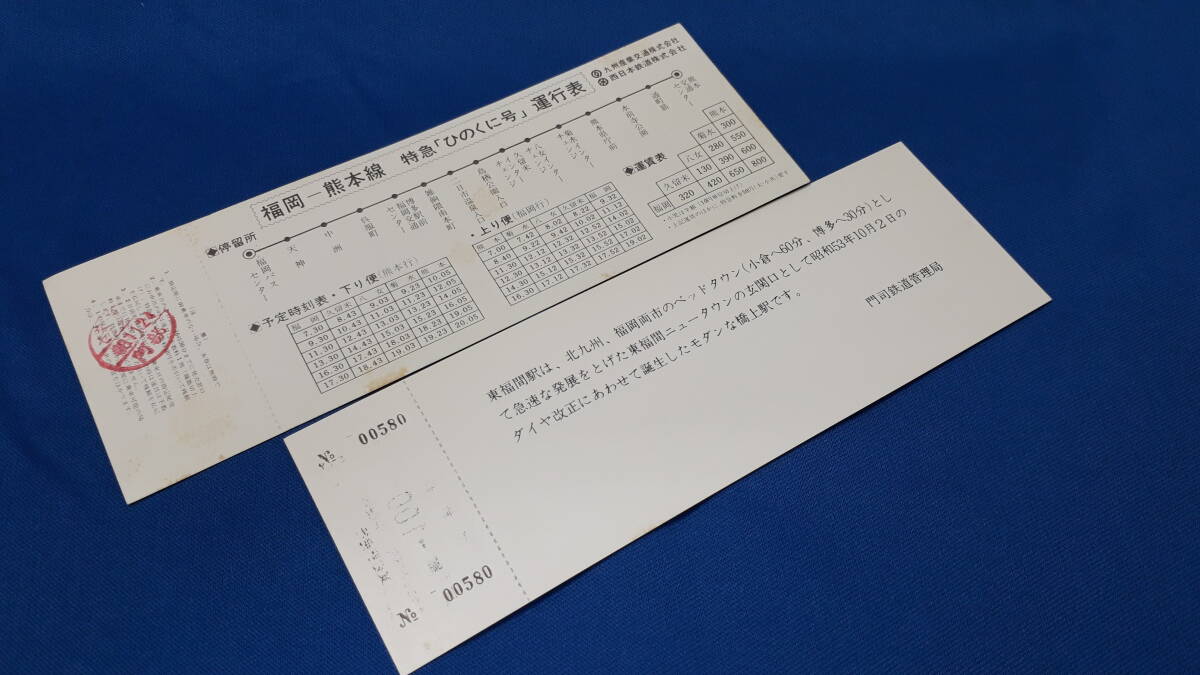 福岡―熊本線 特急「ひのくに号」運行表
九州産業交通株式会社
西日本鉄道株式会社
◆停留所
福岡バスセンター
天神
中洲
呉服町
博多駅前福岡交通センター
雑餉隈南本町
二日市温泉入口
鳥栖公園入口
久留米インターチェンジ
八女インターチェンジ
菊水インターチェンジ
熊本県庁前
水前寺公園
通町筋
熊本交通センター
◆予定時刻表・下り便(熊本行)
福岡 久留米 八女 菊水 熊本
7.30 8.43 9.03 9.23 10.05
9.30 10.43 11.03 11.23 12.05
11.30 12.43 13.03 13.23 14.05
13.30 14.43 15.03 15.23 16.05
16.30 17.43 18.03 18.23 19.05
17.30 18.43 19.03 19.23 20.05
・上り便(福岡行)
熊本 菊水 八女 久留米 福岡
7.00 7.42 8.02 8.22 9.32
8.40 9.22 9.42 10.02 11.12
11.30 12.12 12.32 12.52 14.02
12.30 13.12 13.32 13.52 15.02
14.30 15.12 15.32 15.52 17.02
16.30 17.12 17.32 17.52 19.02
◆運賃表
熊本
菊水 300
八女 280 550
久留米 130 390 600
福岡 320 420 650 800
東福間駅は、北九州、福岡両市のベッドタウン(小倉へ60分、博多へ30分)とし
て急速な発展をとげた東福間ニュータウンの玄関口として昭和53年10月2日の
ダイヤ改正にあわせて誕生したモダンな橋上駅です。
門司鉄道管理局
№ 00580
№ 00580